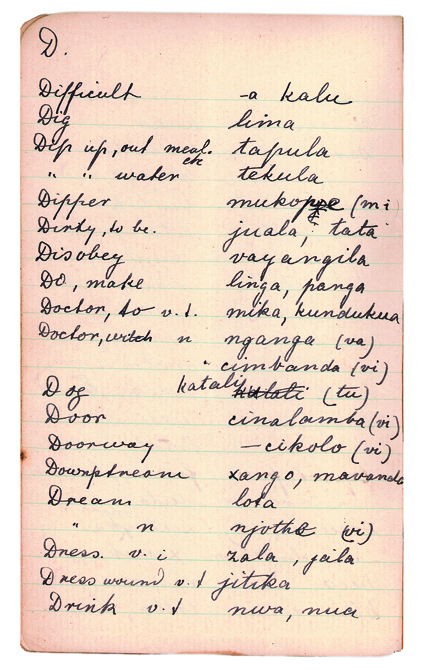 D.
Difficult -a kalu
Dig lima
Dip up, out meal. etc tapula
" " water tekula
Dipper muko (mi
Dirty, to be. juala, tata
Disobey vayangila
Do, make linga, panga
Doctor, to v.t. mika, kundukua
Doctor, witch n nganga (va)
" cimbanda (vi)
Dog katali (tu)
Door cinalamba (vi)
Doorway -cikolo (vi)
Downstream xango, mavanda
Dream lota
" n (vi)
Dress. v. i zala, jaila
Dress wound v. t jitika
Drink v.t nwa, nua